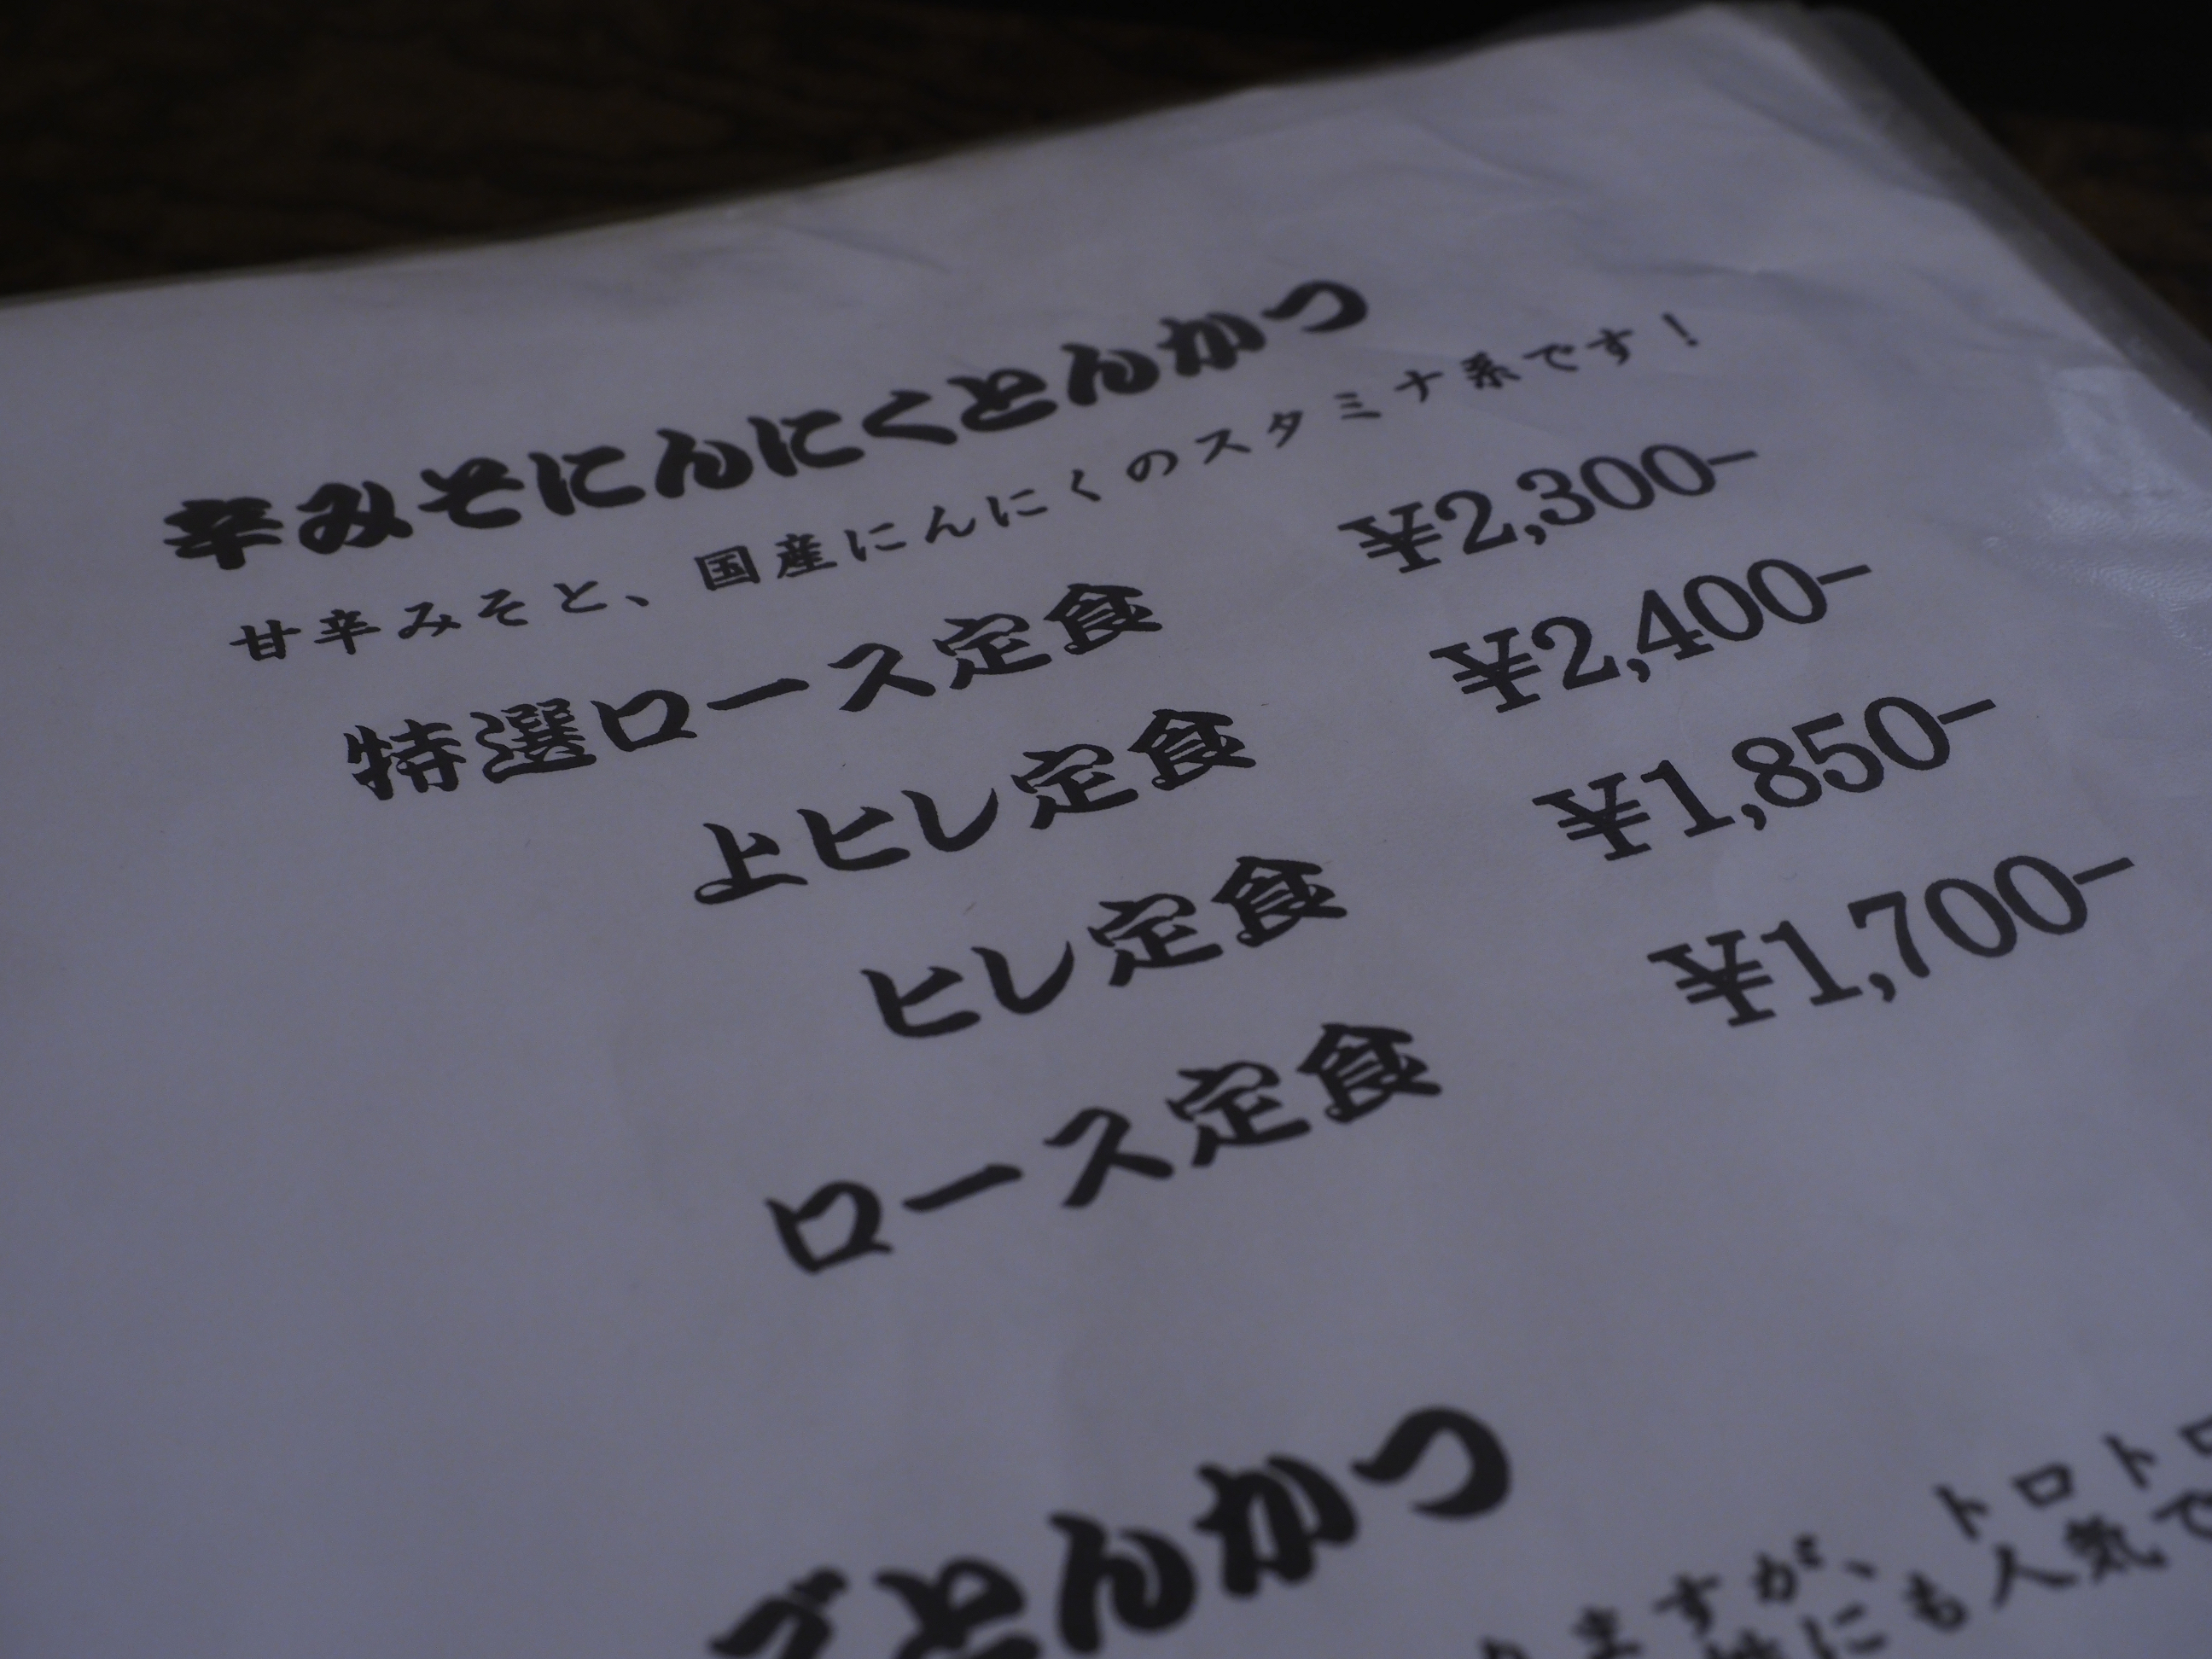 辛みそにんにくとんかつ
甘辛みそと、国産にんにくのスタミナ系です！
特選ロース定食 ¥2,300-
上ヒレ定食 ¥2,400-
ヒレ定食 ¥1,850-
ロース定食 ¥1,700-
とんかつ
ますが、トロトロ
にも人気で